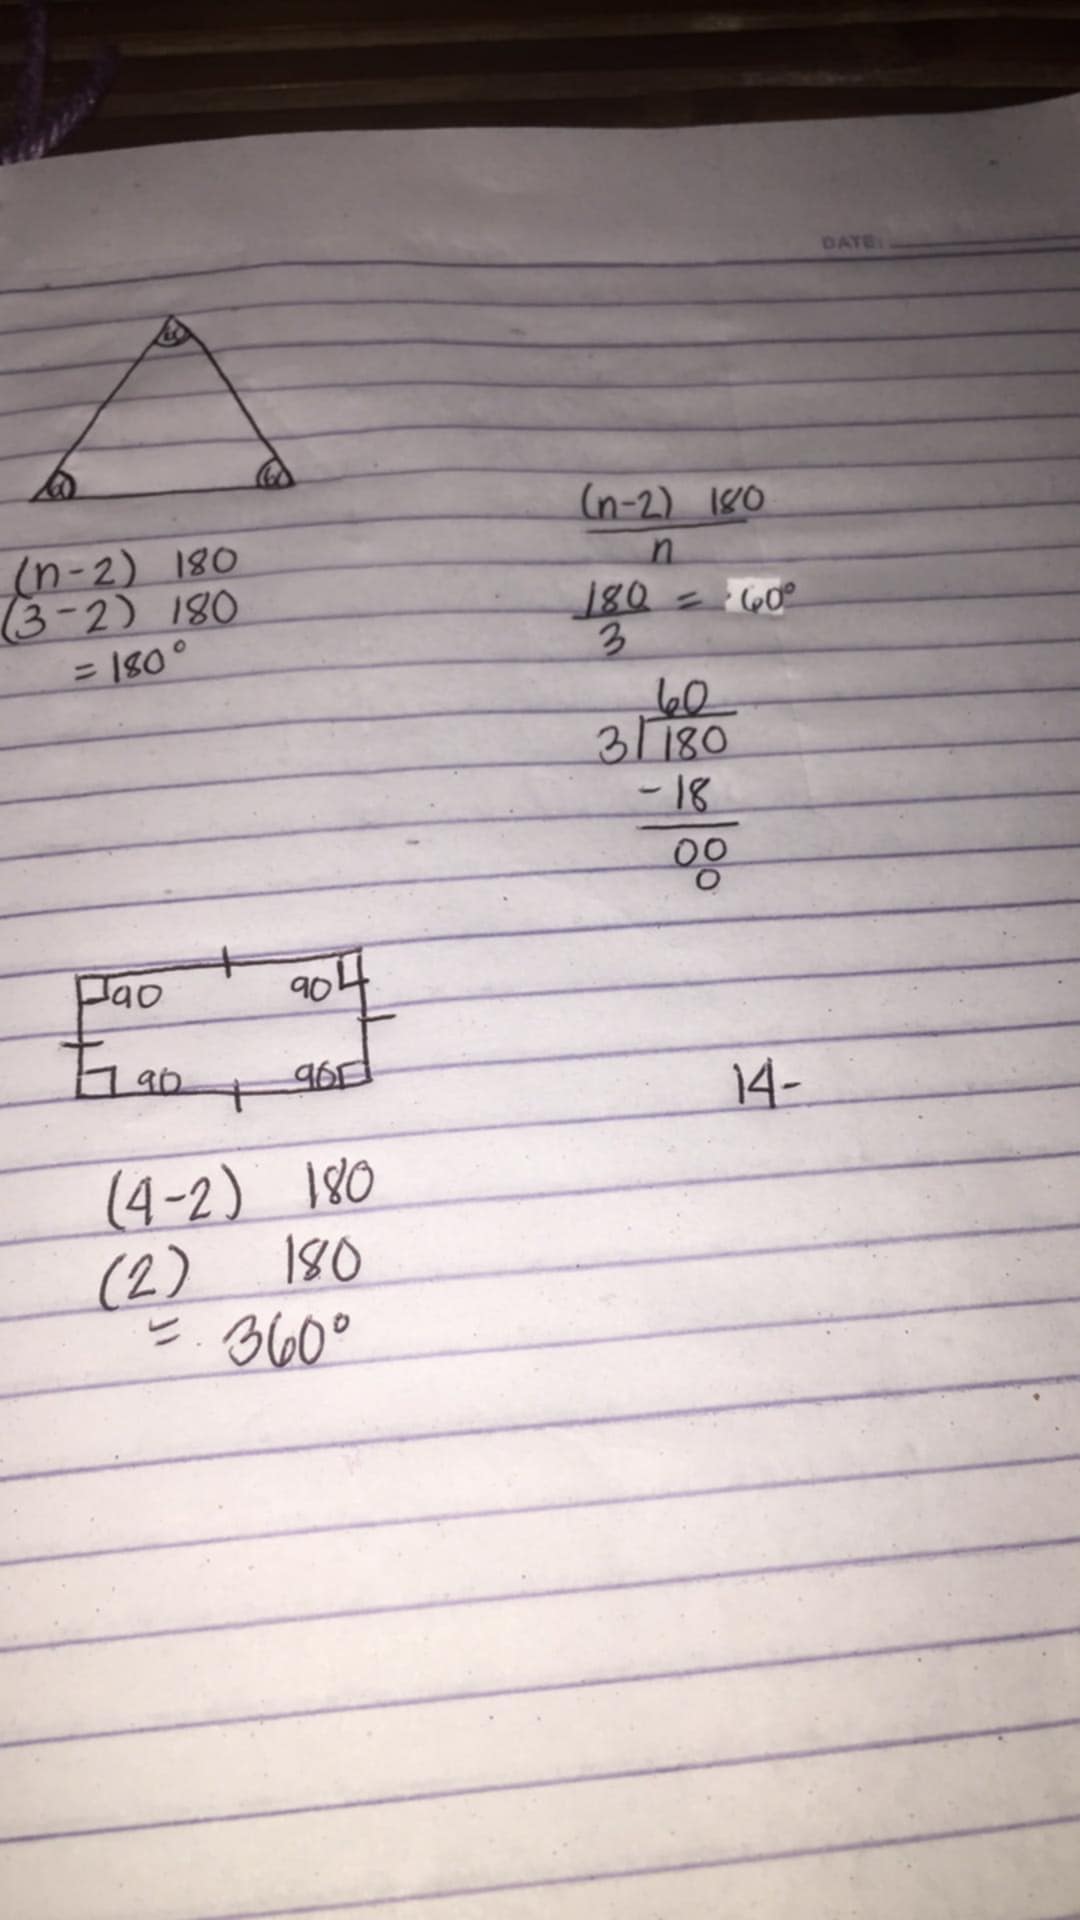 DATE:
60
60 60
(n-2) 180
(3-2) 180
= 180°
(n-2) 180
n
180 = 60°
3
60
3 180
- 18
00
0
90 90
90 90
14-
(4-2) 180
(2) 180
= 360°